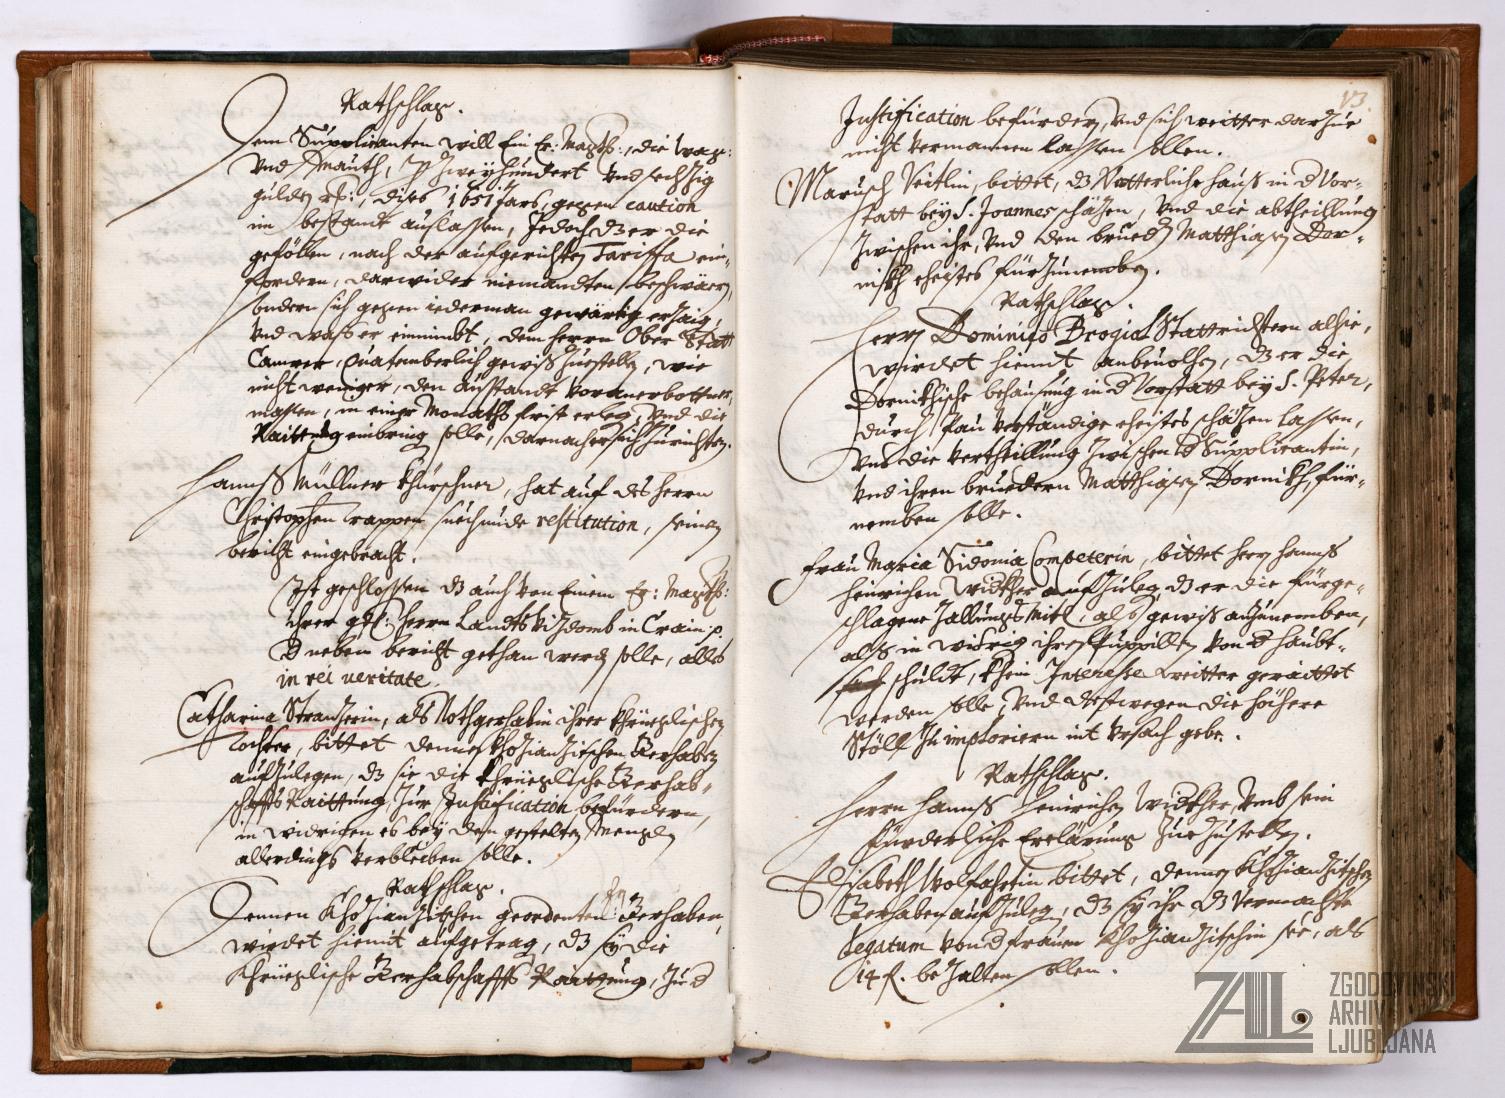 Rathschlag.
Dem Supplicanten will Ein Er: Magist:, die wag:
Vnd Mauth, p. Zweyhundert Vnd sechzig
gulden rh:, dises 1651 Jars, gegen caution
im bestandt auslassen, Jedoch dz er die
geföllen, nach der aufgerichten Tariffa ein-
fordern, darwider niemandten beschwären,
sondern sich gegen iederman gewärtig erzaig,
Vnd was er einnimbt, dem herrn Ober Statt
Camrer, Quatemberlich gewiß Zuestellen, wie
nicht weniger, den Ausstandt Voranerbottner
massen, in einer Monaths frist erleg, Vnd die
Raittung einbring solle, darnach er sich Zurichten.
Hannß Müllner Khürschner, hat auf des herrn
Christophen Trappen restitution, seinen
bericht eingebracht.
Ist geschlossen dz auch Von Einem Er: Magist:
Ihrer herrn Landts Vizdomb in Crain p.
neben bericht gethan werden solle, alles
in rei veritate.
Catharina als Nothgerhabin ihrer
Tochter, bittet dennen Khozianzitschen Gerhaben
aufZulegen, dz sie die Gerhab-
schaffts Raittung, Zur Justification befürdern,
in widrigen es bey dem gestelten
allerdings Verbleiben solle.
Rathschlag.
Dennen Khozianzitschen geordenten Gerhaben,
wirdet hiemit aufgetrag, dz sy die
Gerhabschaffts Raittung, Zur
13.
Justification befürdern, Vnd sich weitter darZue
nicht Vermannen Lassen sollen.
Marusch Veitlin, bittet, dz Vatterliche hauß in d Vor-
statt bey S. Joannes schäzen, Vnd die abtheillung
Zwischen ihr, Vnd den brueder Matthiasen Dor-
nikh ehistes fürZunemben.
Rathschlag.
Herrn Dominico Brogial Stattrichtern alhie,
wirdet hiemit anbeuolhen, dz er die
Dornikhische behausung in d Vorstatt bey S. Peter,
durch Pau Verständige ehistes schäzen Lassen,
Vnd die Vertheillung Zwischen d Supplicantin,
Vnd ihren bruedern Matthiasen Dornikh, für-
nemben solle.
Frau Maria Sidonia Competerin, bittet herrn hannß
heinrichen Widtkher aufZuleg, dz er die fürge-
schlagene Zallungs Mitl, als gewiß anZunemben,
alß in widrig ihren Pupillen Von d haubt-
schuldt, khein Interesse weitter geraittet
werden solle, Vnd destwegen die höhere
Stöll Zu imploriern nit Vrsach gebe.
Rathschlag.
Herrn Hannß Heinrichen Widtkher Vmb sein
fürderliche Erclärung ZueZustellen.
Elisabeth Wolfahrtin bittet, dennen Khozianzitschen
Gerhaben aufZuleg, dz sy ihr dz Vermachte
Legatum Von d frauen Khozianzitschin als
14 f. beZallen sollen.
ZAL
ZGODOVINSKI
ARHIV
LJUBLJANA